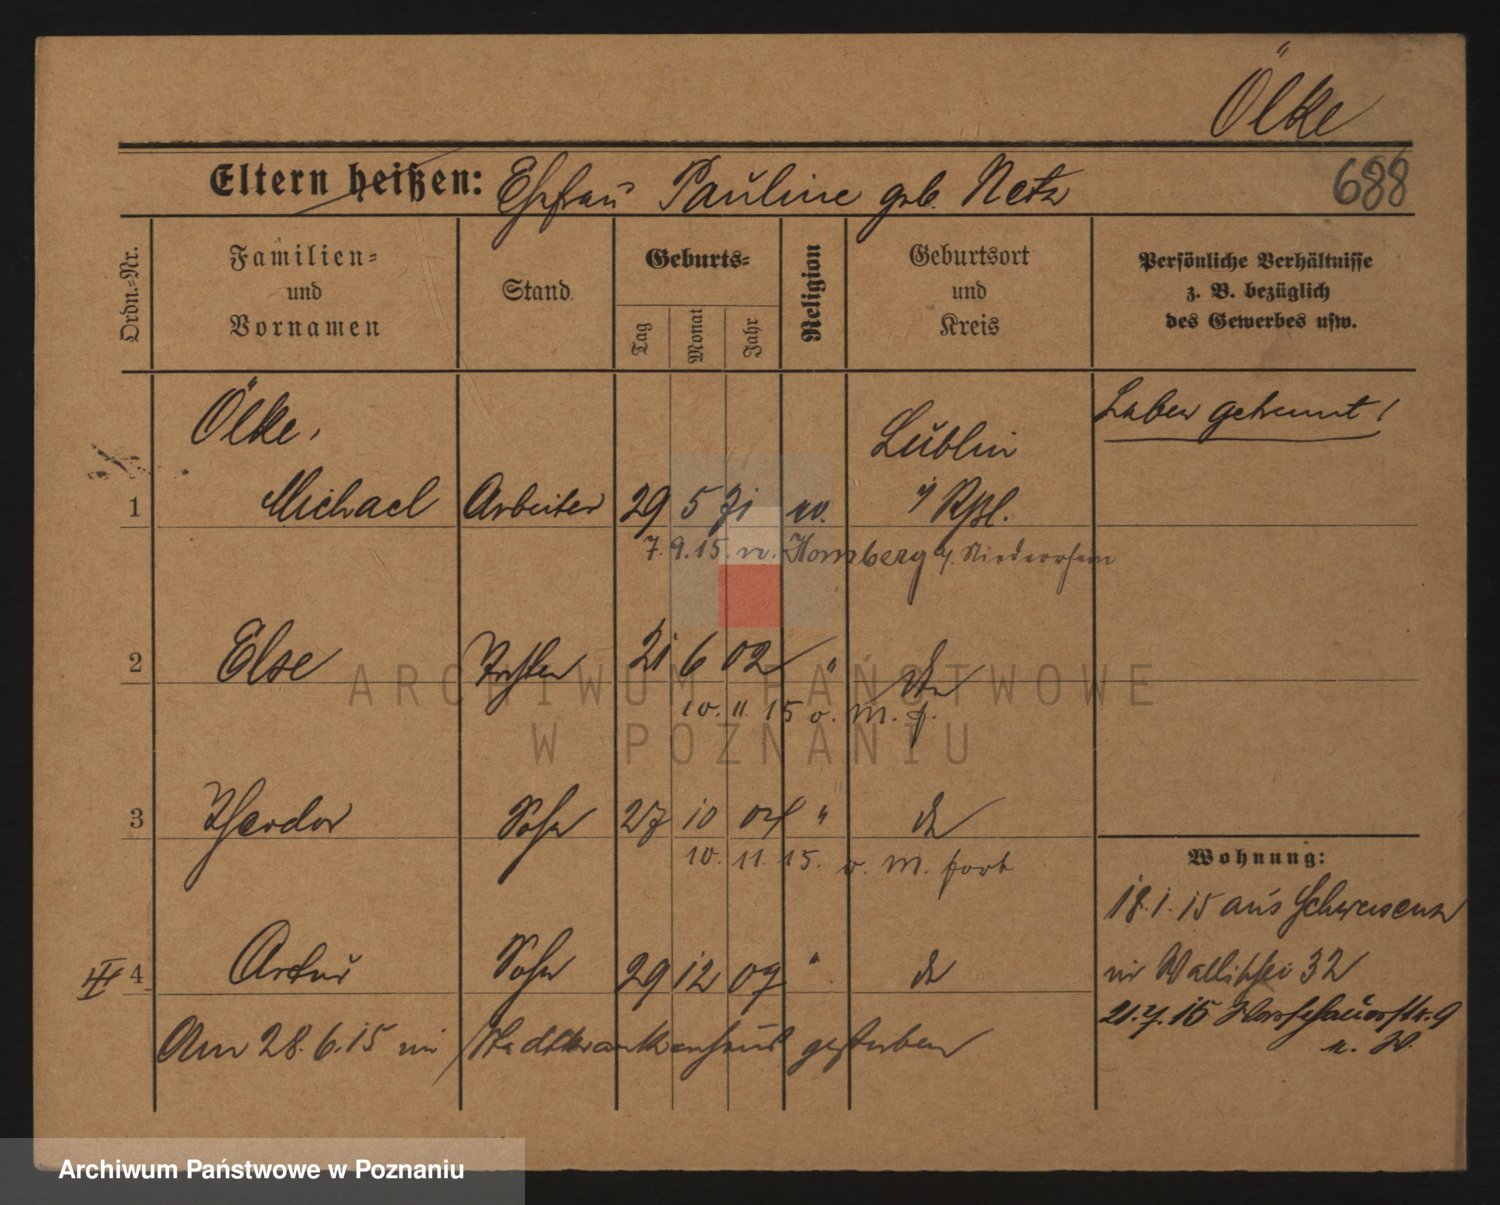 Ölke
Eltern heißen: Ehefrau Pauline geb. Netz
688
Ordn.-Nr.
Familien- und Vornamen
Stand
Geburts-
Tag
Monat
Jahr
Religion
Geburtsort und Kreis
Persönliche Verhältnisse z. B. bezüglich des Gewerbes usw.
Ölke,
Lublin
Leben getrennt!
1 Michael Arbeiter 29 5 71 Rßl.
7.9.15. n. Homberg a/ Niederrhein
2 Else Tochter 21 6 02 "
10. 11. 15 v. M. f.
3 Theodor Sohn 27 10 04 "
10. 11. 15. v. M. fort
Wohnung:
18.1.15 aus Schwersenz
III 4 Artur Sohn 29 12 07 "
Wallischei 32
21.7.15 9
Am 28.6.15 im Stadtkrankenhaus gestorben
ARCHIWUM PAŃSTWOWE
W POZNANIU
Archiwum Państwowe w Poznaniu